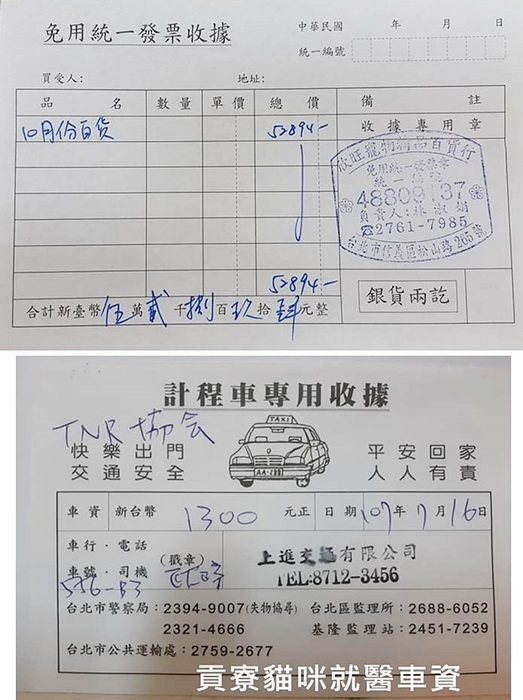 免用統一發票收據
中華民國 年 月 日
統一編號
買受人: 地址:
品名 數量 單價 總價 備註
10月份百貨 52894-
收據專用章
欣旺寵物精品百貨行
免用統一發票章
統一編號
48809137
負責人:林淑娟
☎2761-7985
台北市信義區松山路265號
52894-
合計新臺幣伍萬貳千捌百玖拾肆元整
銀貨兩訖
計程車專用收據
TNR協会
快樂出門
交通安全
TAXI
平安回家
人人有責
車資 新台幣 1300 元正 日期 107年 月16日
車行·電話
(戳章)
上進交通有限公司
車號·司機
TEL:8712-3456
台北市警察局:2394-9007(失物協尋) 台北區監理所:2688-6052
2321-4666 基隆監理站:2451-7239
台北市公共運輸處:2759-2677
貢寮貓咪就醫車資